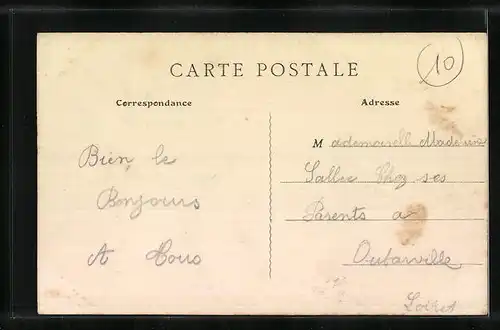 10
CARTE POSTALE
Correspondance
Adresse
Bien le
Bonjours
A Tous
Mademoiselle Madeleine
Sallée Chez ses
Parents a
Outarville
Loiret